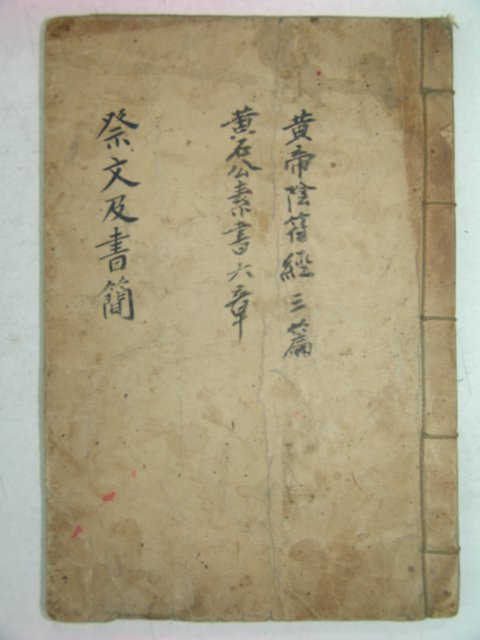 黄帝陰符經三篇
黄石公素書六章
祭文及書簡